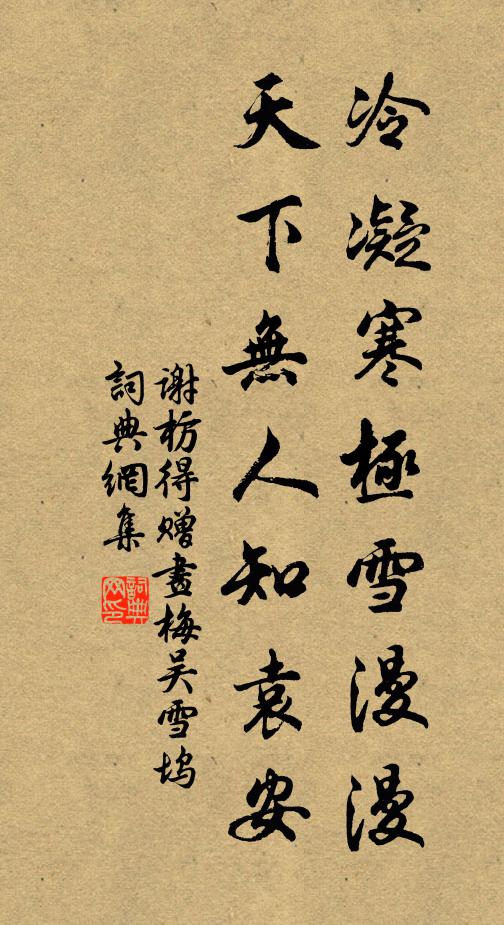 冷凝寒極雪漫漫
天下無人知袁安
谢枋得赠畫梅吴雪坞
詞典網集
詞典网印